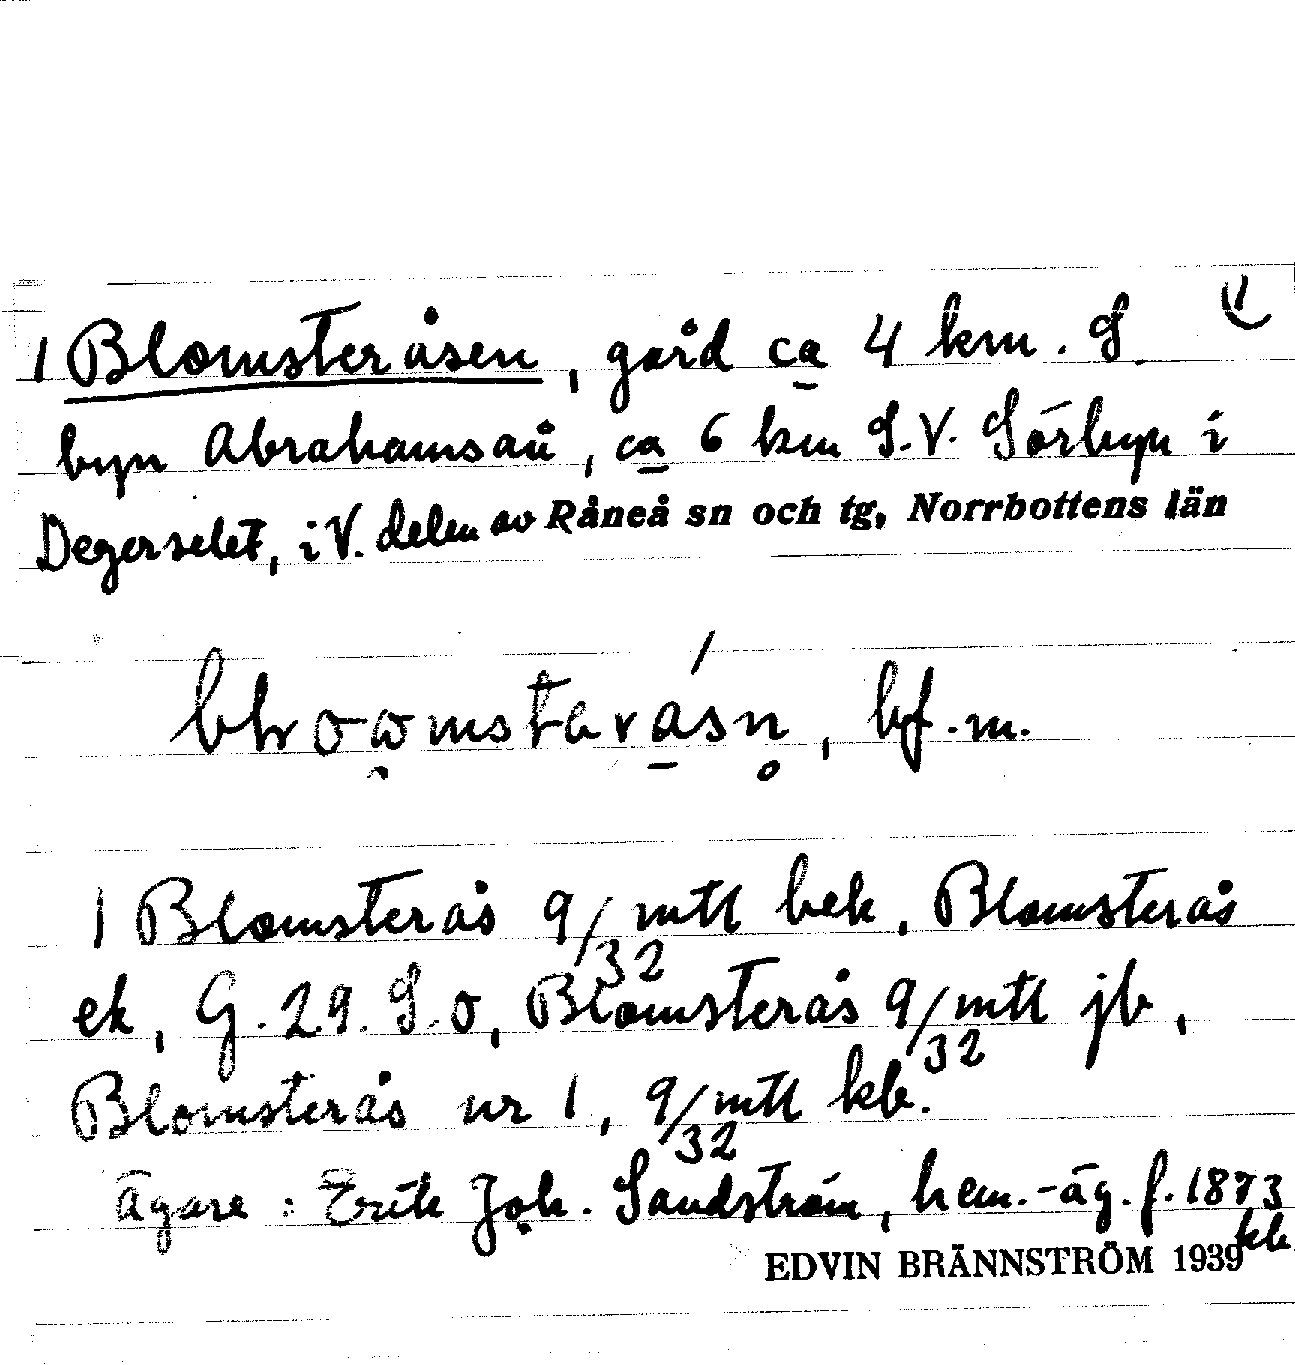 1 Blomsteråsen, gård ca 4 km. S.
byn Abrahamsån, ca 6 km S.V. Sörbyn i
Degerselet, i V. delen av Råneå sn och tg, Norrbottens län
bf. m.
1 Blomsterås 9/32 mtl bek, Blomsterås
ek, G. 29. S.O, Blomsterås 9/32 mtl jb,
Blomsterås nr 1, 9/32 mtl kb.
Ägare: Erik Joh. Sandström, hem.-äg. f. 1873
kb
EDVIN BRÄNNSTRÖM 1939